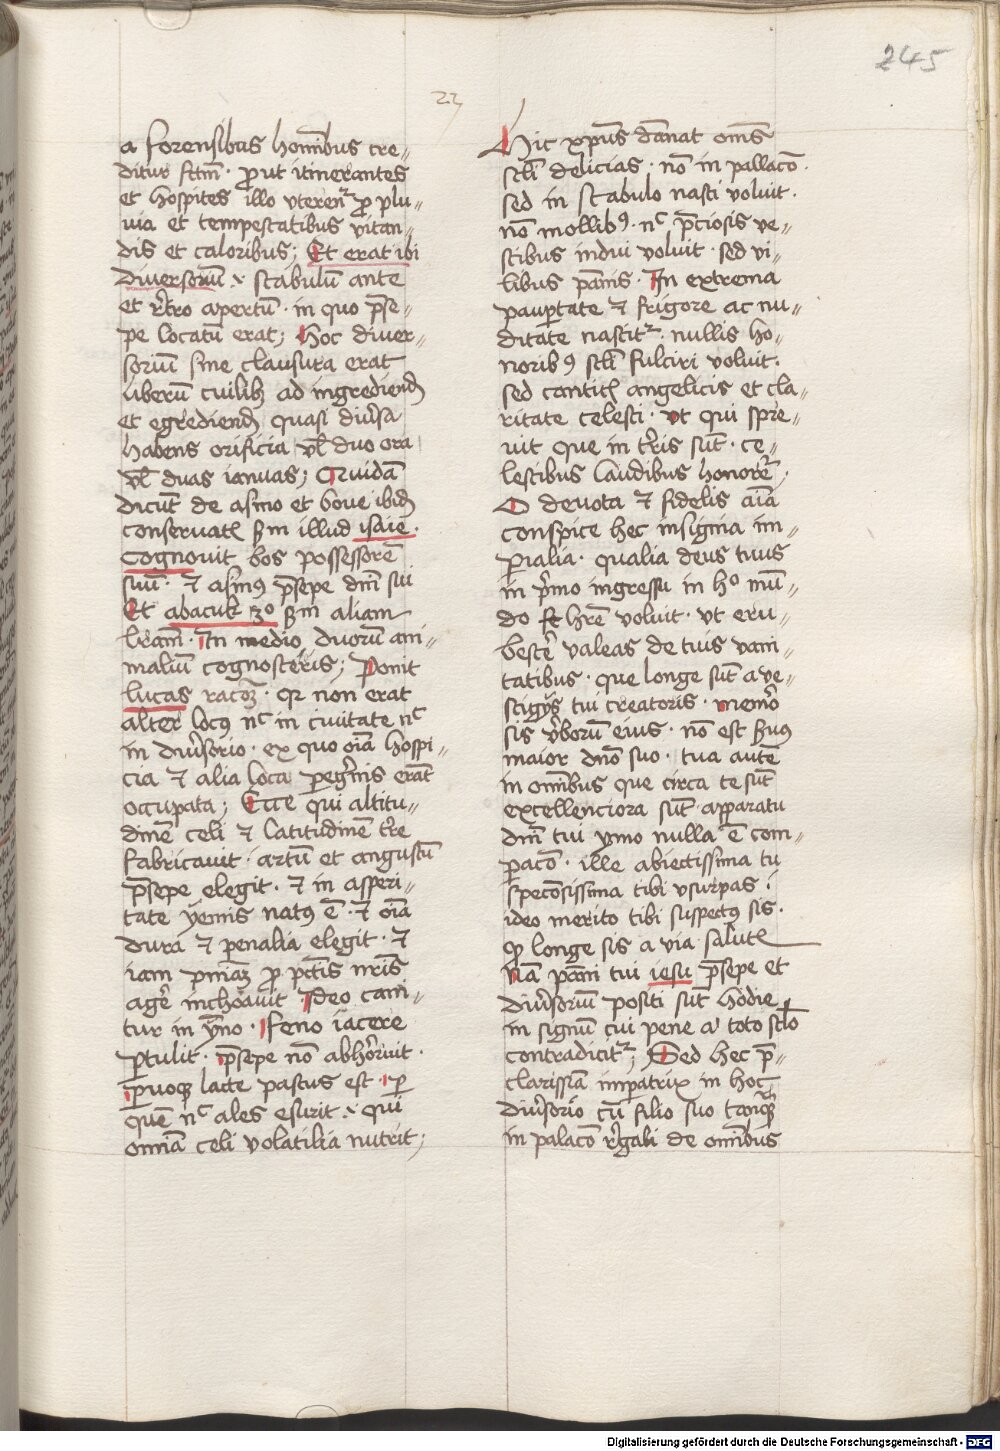 245
23
a forensibus hominibus cre„
ditur fctm̄ · prout itinerantes
et hospites illo vterent᷑ p̱ plu„
uia et tempestatibus vitan„
dis et caloribus; Et erat ibi
diuersoriū · stabulū ante
et rͤtro apertū · in quo p̄se„
pe locatū erat; Hoc diuer„
soriū sine clausura erat
liberū cuilibꝫ ad ingrediend̄
et egrediend̄ quasi diuͥsa
habens orificia vł duo ora
vł duas ianuas; Quidā
dicūt de asino et boue ibid̄
conseruatꝭ ẜm illud isaie ·
Cognouit bos possessorē
suū · ⁊ asinꝰ p̄sepe dn̄i sui
Et abacuk 3º ẜm aliam
lr̄am · In medio duorū ani„
maliū cognosceris; Ponit
lucas racōꝫ · qꝛ non erat
alter locꝰ nᶜ in ciuitate nᶜ
in diuͥsorio · ex quo oīa hospi„
cia ⁊ alia loca peg̊nis erāt
occupata; Ecce qui altitu„
dinē celi ⁊ latitudinē tr̄e
fabricauit · artū et angustū
p̄sepe elegit · ⁊ in asperi„
tate yemis natꝰ ē · ⁊ oīa
dura ⁊ penalia elegit · ⁊
iam pn̄iaꝫ p̱ pctīs nr̄is
agͤ inchoauit Ideo cani„
tur in ym̄no · Feno iacere
ꝑtulit · p̄sepe nō abhorͥuit ·
ꝑuoqꝫ lacte pastus est · ꝑ
quē nᶜ ales esurit · qui
omnia celi volatilia nutrit;
Hic xp̄us dānat om̄s
scłi delicias · nō in pallacō ·
sed in stabulo nasci voluit ·
nō mollibꝰ · nᶜ p̄ciosis ve„
stibus indui voluit · sed vi„
libus pānis · In extrema
pauꝑtate ⁊ frigore ac nu„
ditate nascit᷑ · nullis ho„
noribꝰ scłi fulciri voluit ·
sed canticꝭ angelicis et cla„
ritate celesti · vt qui spre„
uit que in tr̄is sūt · ce„
lestibus laudibus honorͤt᷑ ·
O deuota ⁊ fidelis aīa
conspice hec insignia im„
ꝑialia · qualia deus tuus
in pͥmo ingressu in hº mū„
do hr̄e voluit · vt eru„
bescͤ valeas de tuis vani„
tatibus · que longe sūt a ve„
stigÿs tui creatoris · memōr
sis vͤborū eius · nō est ẜuꝰ
maior dn̄o suo · tua autē
in omībus que circa te sūt
excellenciora sūt apparatu
dn̄i tui ymo nulla ē com„
ꝑacō · ille abiectissima tu
specōsissima tibi vsurpas ·
ideo merito tibi suspectꝰ sis ·
qͦ longe sis a via salutꝭ
Nā pāni tui iesu p̄sepe et
diuͥsoriū positi sūt hodie
in signū cui pene a toto scło
contradicit᷑; Sed hec p̄„
clarissīa impatrix in hoc
diuͥsorio cū filio suo tanqͣꝫ
in palacō rͤgali de omībus
Digitalisierung gefördert durch die Deutsche Forschungsgemeinschaft - DFG